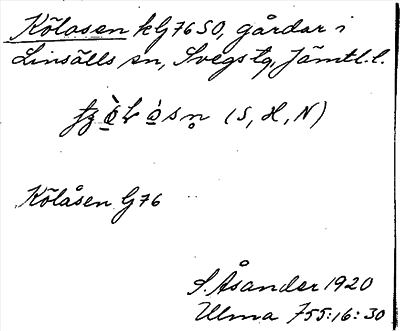 Kölåsen k G 76 SO, gårdar i
Linsälls sn, Svegs tg, Jämtl. l.
(S, H, N)
Kölåsen G 76
S. Åsander 1920
Ulma 755:16:30